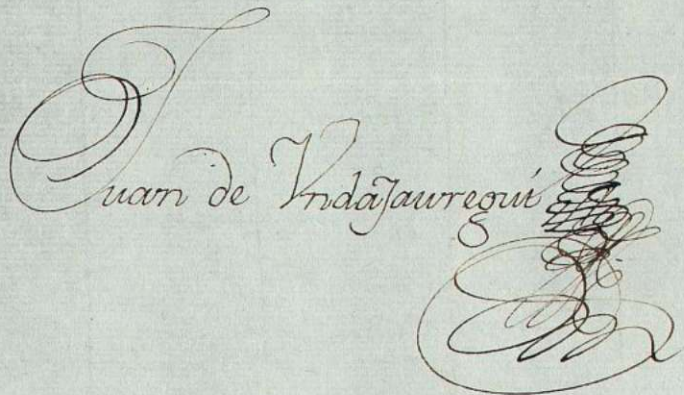 Juan de Vndajauregui